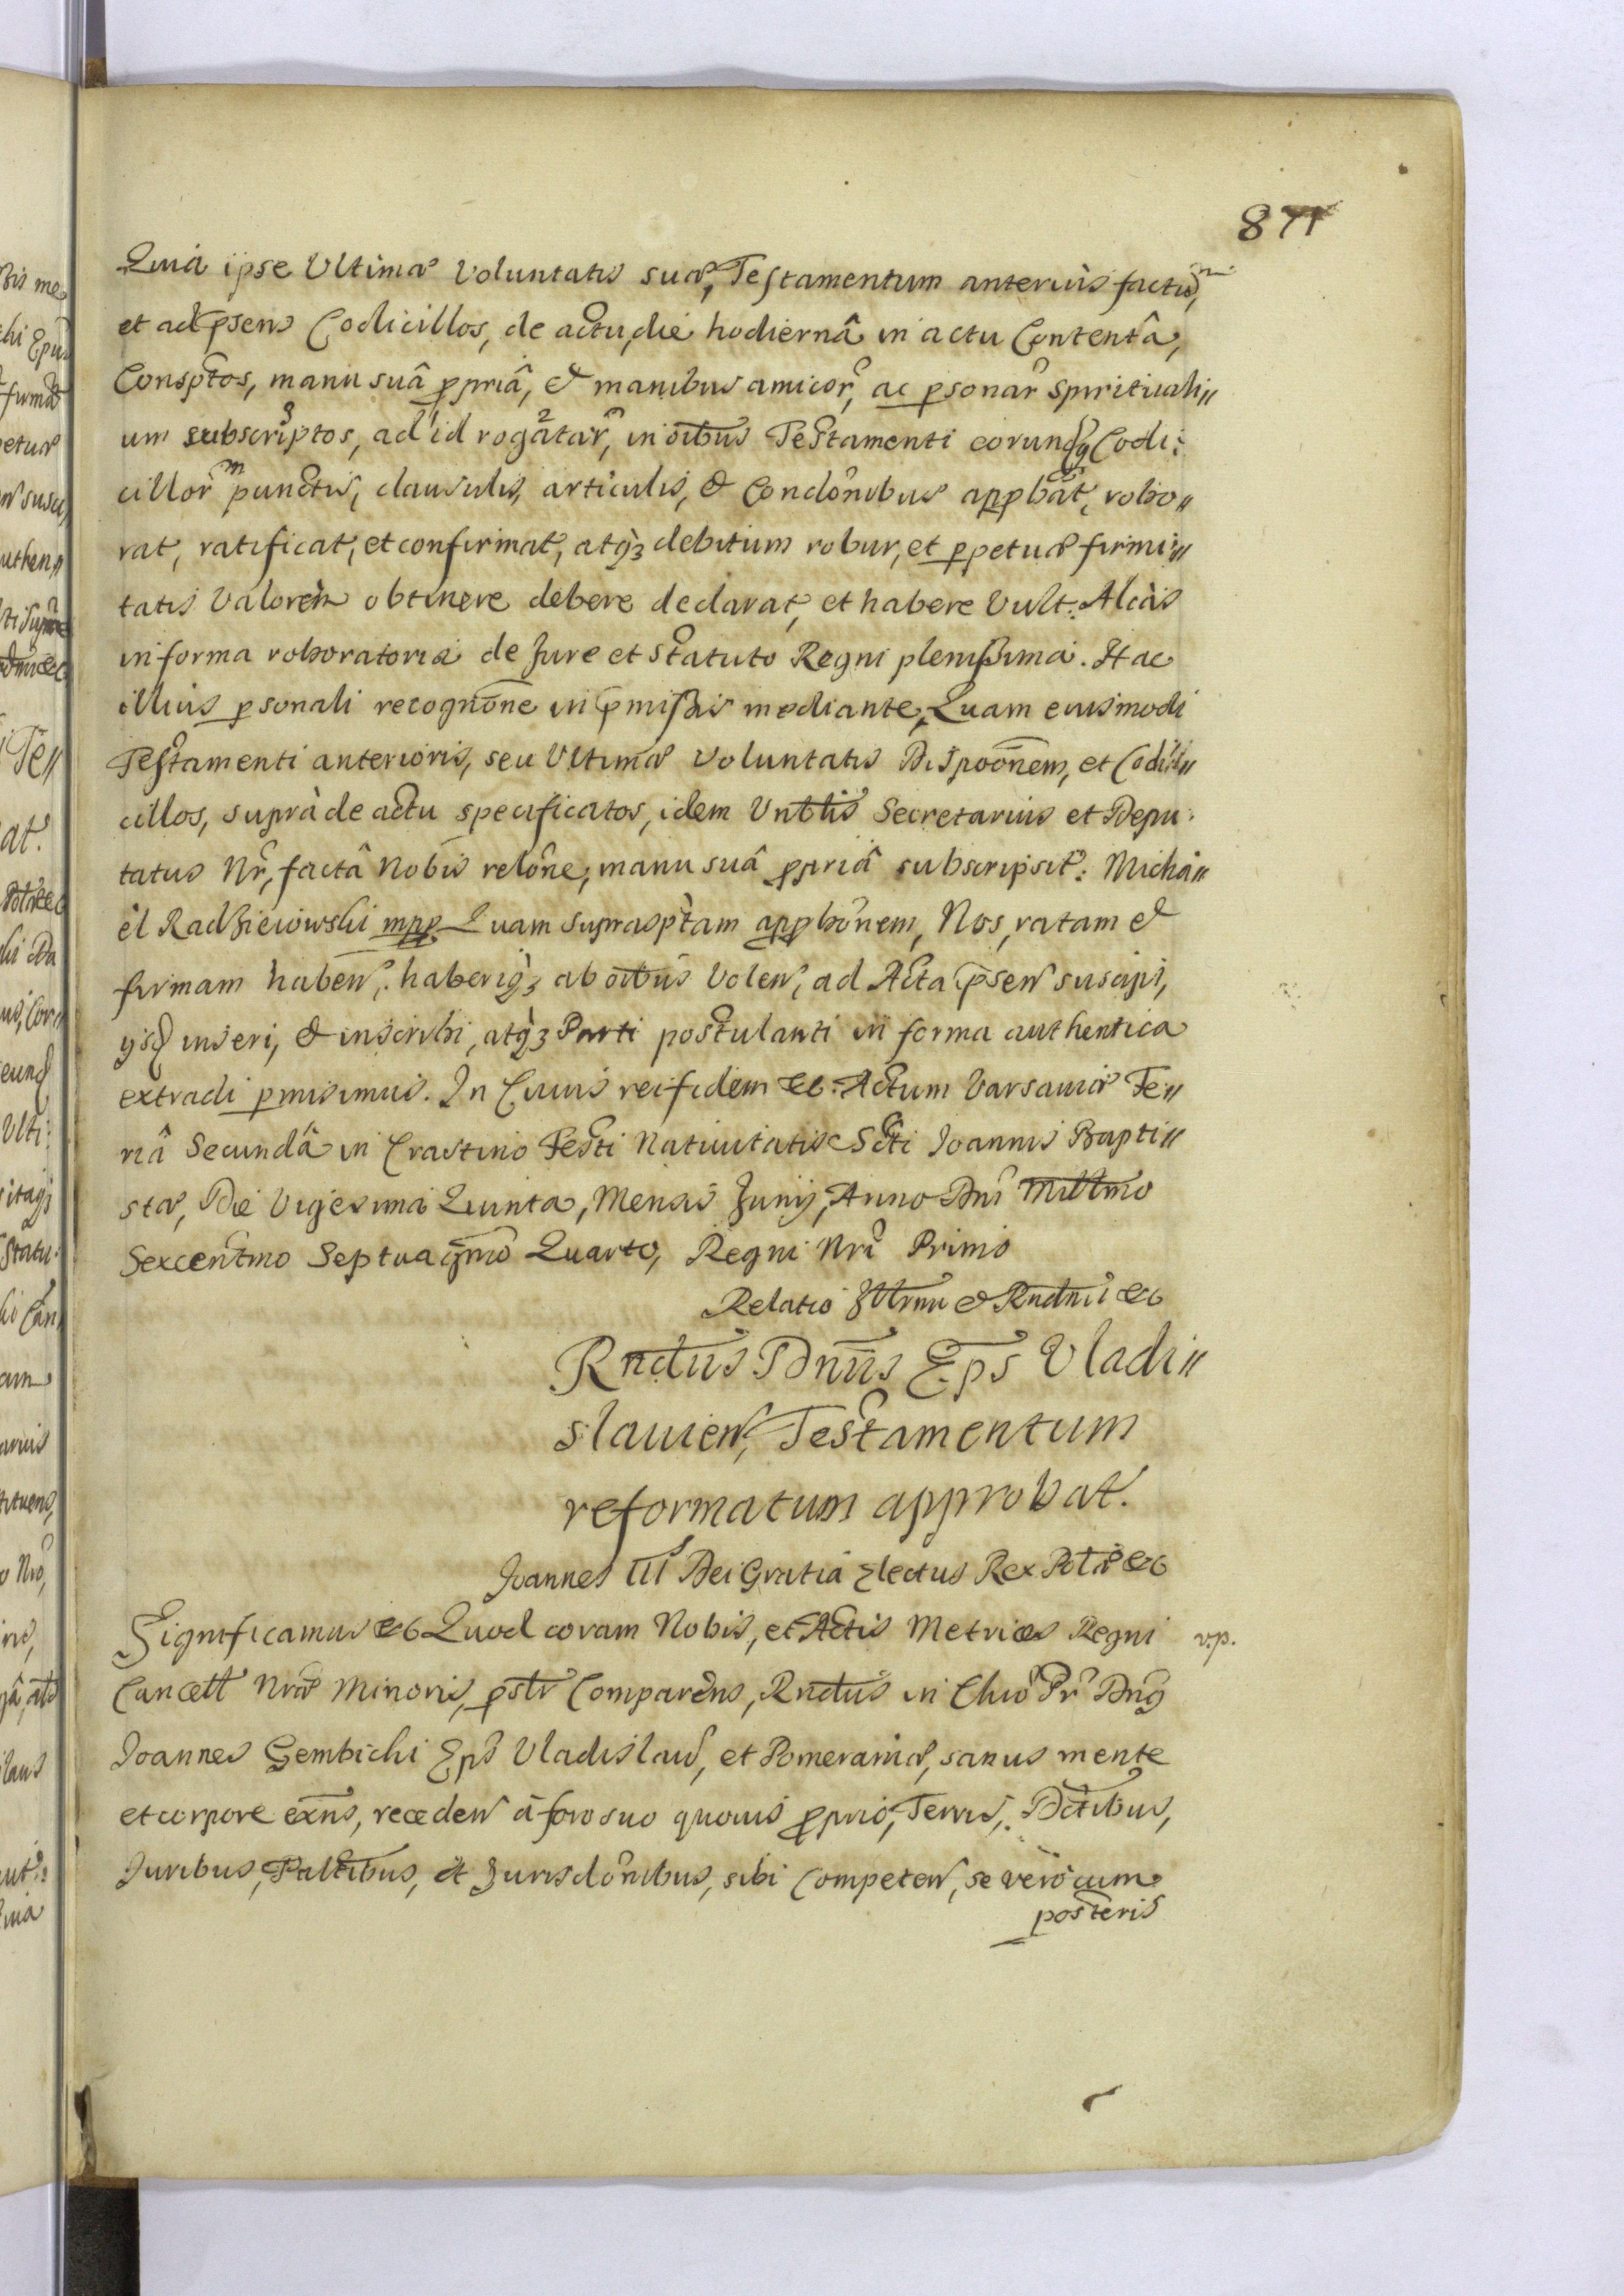 871
Quia ipse Ultimæ Voluntatis suæ, Testamentum anterius factũ,
et ad p̃sens Codicillos, de actu, die hodiernâ in actu Contentâ,
Consp̃tos, manu suâ ppriâ, et manibus amicor̃, ac psonar̃ Spirituali„
um subscriptos, ad id rogatar̃, in oĩbus Testamenti eorundq̃ Codi:
cillor̃ punctis, clausulis, articulis, et Condõnibus appbat, robo„
rat, ratificat, et confirmat, atq3 debitum robur, et ppetuæ firmi„
tatis Valorem obtinere debere declarat, et habere Vult. Aliàs
in forma roboratoria de Jure et Statuto Regni plenissima. Hac
illius psonali recognõne in p̃missis mediante, Quam eiusmodi
Testamenti anterioris, seu Ultimæ Voluntatis Dispoõnem, et Codi„
cillos, suprà de actu specificatos, idem Vnblis Secretarius et Depu:
tatus Nr̃, factâ Nobis relõne, manu suâ ppriâ subscripsit. Michà„
èl Radzieiowski mpp. Quam suprasp̃tam appbõnem, Nos, ratam et
firmam haben̄, haberiq3 ab oĩbus Volen̄, ad Acta p̃sen̄ suscipi,
ysq̃ inseri, et inscribi, atq3 Parti postulanti in forma authentica
extradi pmisimus. In Cuius rei fidem etc. Actum Varsaviæ Fe„
riâ Secundâ in Crastino Festi Nativitatis Scti Joannis Bapti„
stæ, Die Vigesima Quinta, Mensis Junij, Anno Dnĩ Millmo
Sexcentmo Septuagm̃o Quarto, Regni Nrĩ Primo
Relatio Illrmi et Rndmi etc
Rndus Dnus Eps Vladi„
slavien̄, Testamentum
reformatum approbat.
Joannes III Dei Gratia Electus Rex Pol̃æ etc
Significamus etc Quod coram Nobis, et Actis Metrices Regni
v.p.
Cancell Nræ Minoris, pstr Comparens, Rndus in Chrõ Pr̃ Dn9
Joannes Gembicki Eps̃ Vladislaũ, et Pomeraniæ, sanus mente
et corpore exñs, receden̄ à foro suo quovis pprio, Terris, Dctibus,
Juribus, Paltibus, et Jurisdõnibus, sibi Competen̄, se verò cum
posteris